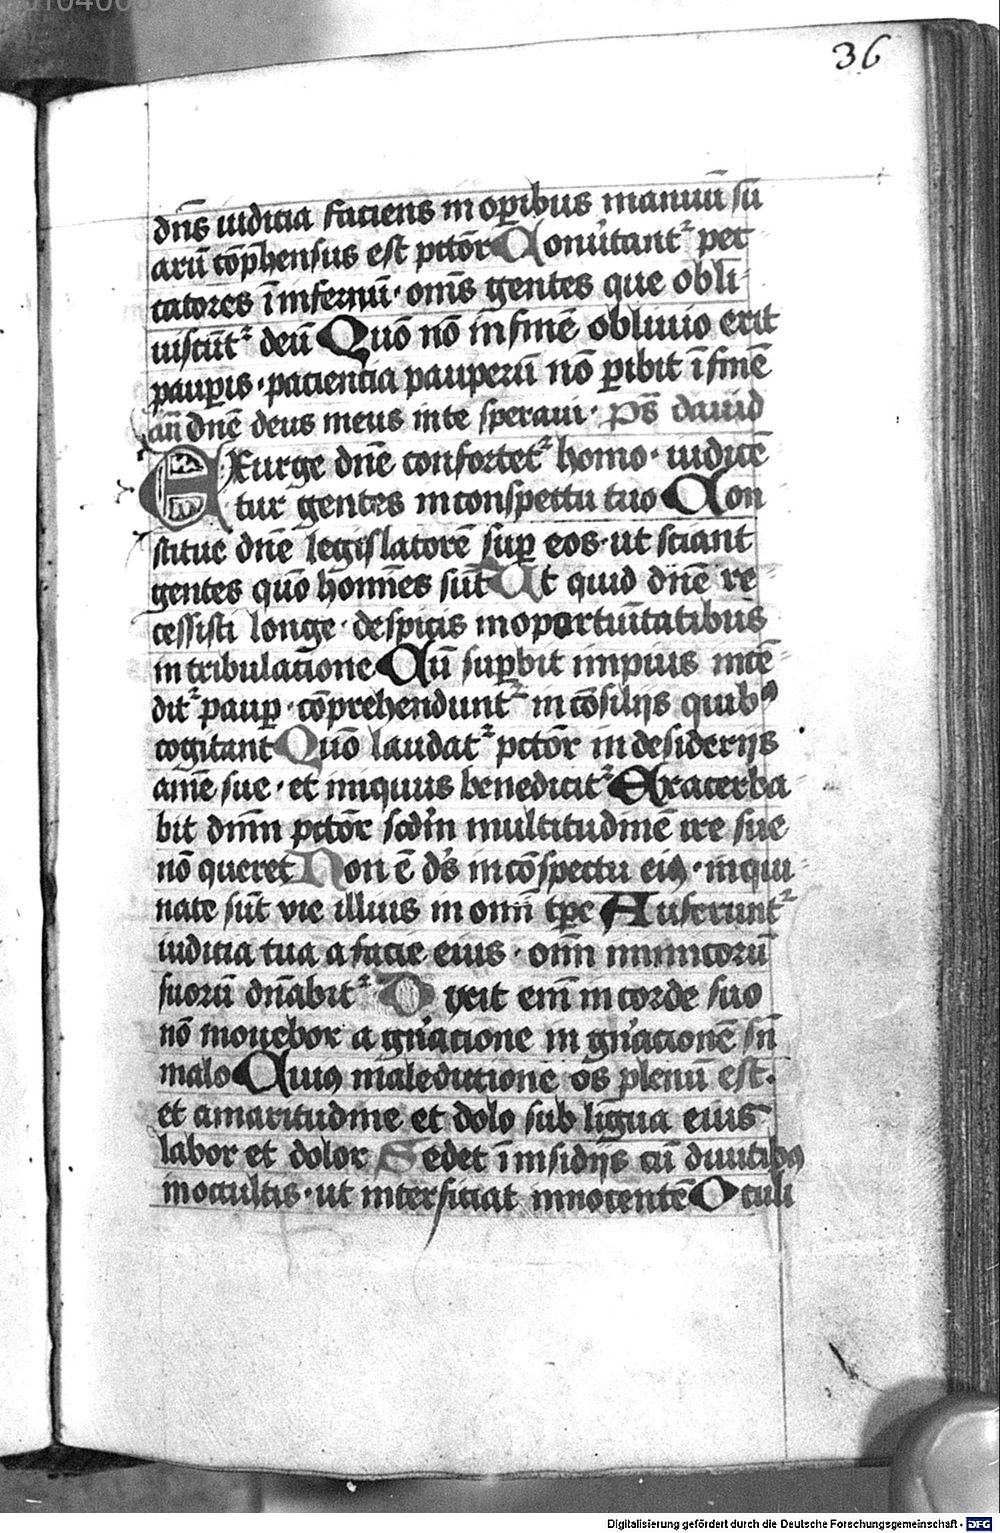 36
dn̄s iudicia faciens in oꝑibus manuū su
arū cōp̄hensus est pctōr Conu̓tantᷣ pec
catores ī infernū · om̄s gentes que obli
uiscūtᷣ deū Quō nō in finē obliuio erit
pauꝑis · paciencia pauperū nō ꝑibit ī finē
an̄ dn̄e deus meus in te speraui · ps̄ dauid
Exurge dn̄e confortetᷣ homo · iudicē
tur gentes in conspectu tuo Con
stitue dn̄e legislatorē suꝑ eos · ut sciant
gentes quō homīes sūt Ut quid dn̄e re
cessisti longe · despicis in oportūitatibus
in tribulacione Cū suꝑbit impius incē
ditᷣ pauꝑ · cōprehenduntᷣ in cōsilijs quibꝰ
cogitant Quō laudatᷣ pctōr in desiderijs
anīe sue · et iniquus benedicitᷣ Exacerba
bit dnm̄ pctōr scd̓m multitudinē ire sue
nō queret Non ē ds̓ in cōspectu eiꝰ · inqui
nate sūt vie illius in omī tp̄e Auferuntᷣ
iudicia tua a facie eius · oīm inimicorū
suorū dn̄abitᷣ Dixit em̄ in corde suo
nō mouebor a gn̓acione in gn̓acionē sn̄
malo Cuiꝰ maledictione os plenū est ·
et amaritudine et dolo sub ligua eius
labor et dolor Sedet ī insidijs cū diuitibꝰ
in occultis · ut interficiat innocentē Oculi
Digitalisierung gefördert durch die Deutsche Forschungsgemeinschaft - DFG